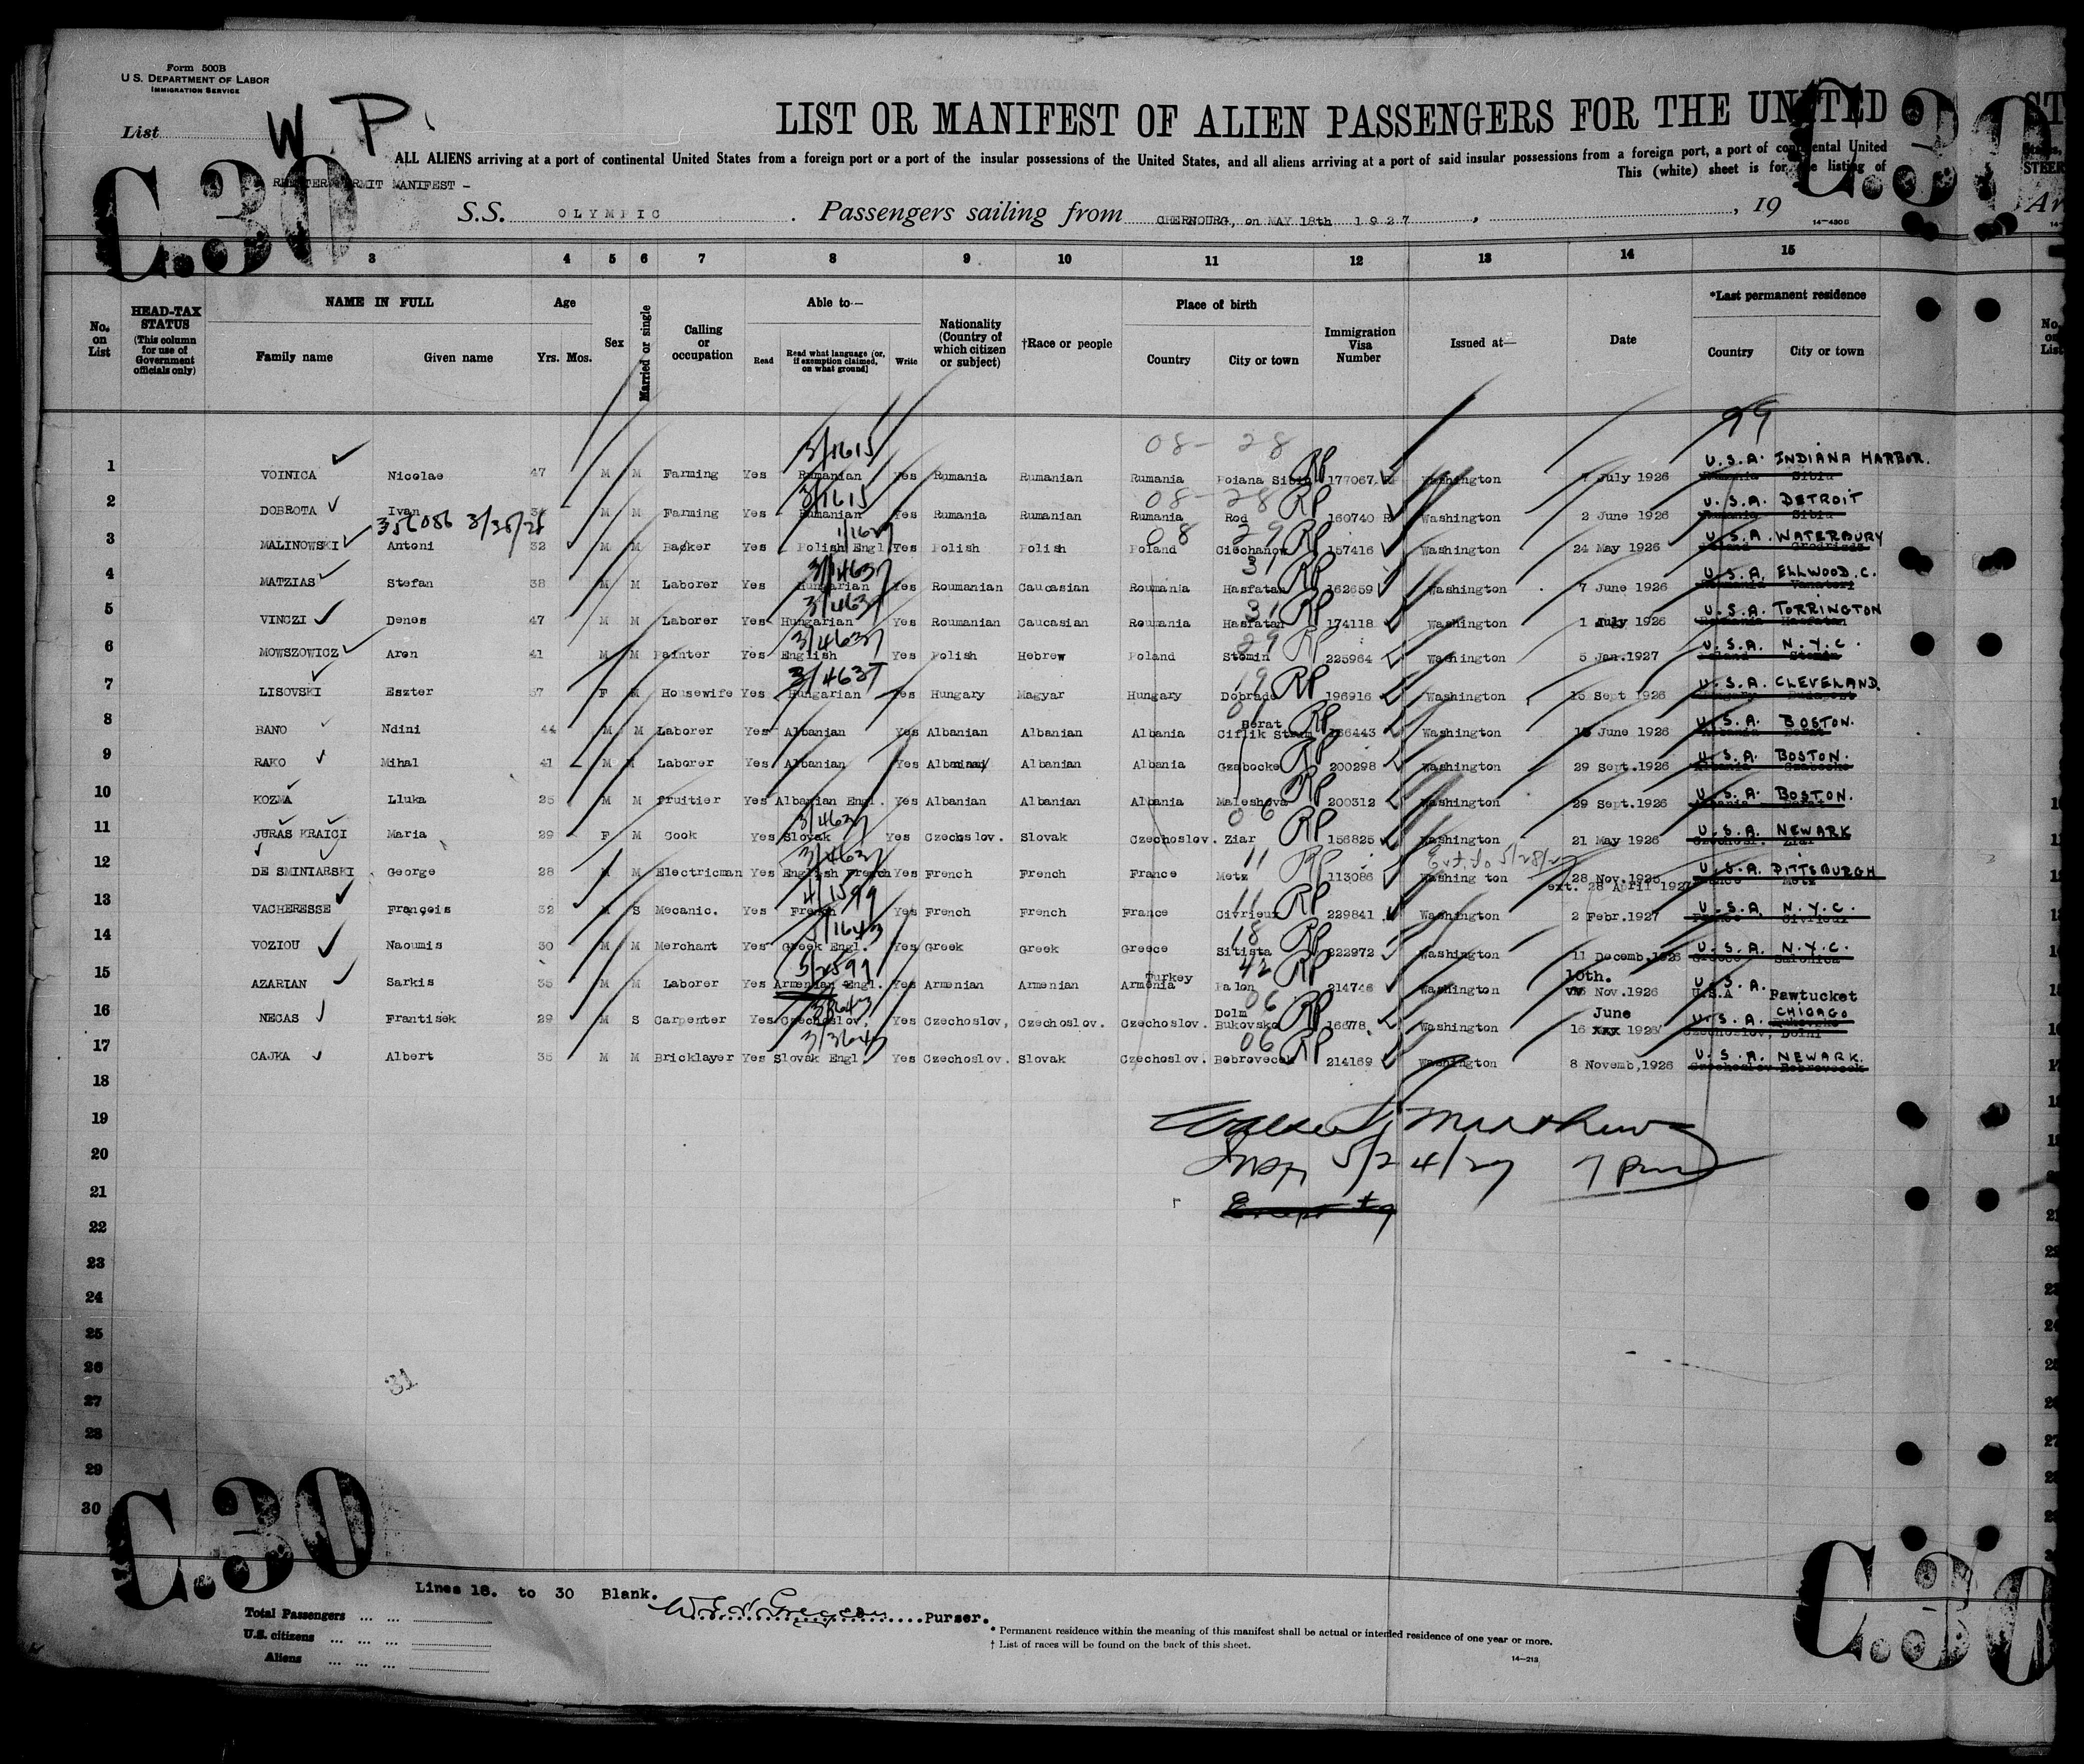 Form 500B
U. S. DEPARTMENT OF LABOR
IMMIGRATION SERVICE
W. P.
List
LIST OR MANIFEST OF ALIEN PASSENGERS FOR THE UNITED ST
C.30 C.30
ALL ALIENS arriving at a port of continental United States from a foreign port or a port of the insular possessions of the United States, and all aliens arriving at a port of said insular possessions from a foreign port, a port of continental United
This (white) sheet is for the listing of
PERMIT MANIFEST -
S.S. OLYMPIC Passengers sailing from CHERBOURG, on MAY 18th 1927, 19
14-430 B
3 4 5 6 7 8 9 10 11 12 13 14 15
No. on List
HEAD-TAX STATUS (This column for use of Government officials only)
NAME IN FULL Family name Given name
Age Yrs. Mos.
Sex
Married or single
Calling or occupation
Able to— Read Read what language (or, if exemption claimed, on what ground) Write
Nationality (Country of which citizen or subject)
†Race or people
Place of birth Country City or town
Immigration Visa Number
Issued at—
Date
*Last permanent residence Country City or town
99
3/1615 08- 28
1 VOINICA Nicolae 47 M M Farming Yes Rumanian Yes Rumania Rumanian Rumania Poiana Sibiu RP 177067 Washington 7 July 1926 U.S.A. INDIANA HARBOR. Rumania Sibiu
3/1615 08-28
2 DOBROTA Ivan M M Farming Yes Rumanian Yes Rumania Rumanian Rumania Rod RP 160740 Washington 2 June 1926 U.S.A. DETROIT Rumania Sibiu
356086 08 29
3 MALINOWSKI Antoni 32 M M Backer Yes Polish Engl. Yes Polish Polish Poland Ciechanow RP 157416 Washington 24 May 1926 U.S.A. WATERBURY
3/4637
4 MATZIAS Stefan 38 M M Laborer Yes Hungarian Yes Roumanian Caucasian Roumania Hasfatan RP 162659 Washington 7 June 1926 U.S.A. ELLWOOD.C.
3/4637 31
5 VINCZI Denes 47 M M Laborer Yes Hungarian Yes Roumanian Caucasian Roumania Hasfatan RP 174118 Washington 1 July 1926 U.S.A. TORRINGTON Roumania Hasfatan
3/4637 29
6 MOWSZOWICZ Aron 41 M M Painter Yes English Yes Polish Hebrew Poland Stomin RP 225964 Washington 5 Jan.1927 U.S.A. N.Y.C. Poland Stomin
3/4637 19
7 LISOVSKI Eszter 37 F M Housewife Yes Hungarian Yes Hungary Magyar Hungary Dobrado RP 196916 Washington 15 Sept 1926 U.S.A. CLEVELAND. Hungary Budapest
01
8 BANO Ndini 44 M M Laborer Yes Albanian Yes Albanian Albanian Albania Berat Ciflik RP 166443 Washington June 1926 U.S.A. BOSTON. Albania Berat
9 RAKO Mihal 41 M M Laborer Yes Albanian Yes Albanian Albanian Albania Gzabocke RP 200298 Washington 29 Sept.1926 U.S.A. BOSTON.
10 KOZMA Lluka 25 M M fruitier Yes Albanian Engl. Yes Albanian Albanian Albania Maleshova RP 200312 Washington 29 Sept.1926 U.S.A. BOSTON.
3/4637 06
11 JURAS KRAICI Maria 29 F M Cook Yes Slovak Yes Czechoslov. Slovak Czechoslov. Ziar RP 156825 Washington 21 May 1926 U.S.A. NEWARK Ziar
3/4637 11 Ext. to 5/28/27
12 DE SMINIARSKI George 28 M M Electricman Yes English French Yes French French France Metz RP 113086 Washing ton 28 Nov.1925 ext. 28 April 1927 U.S.A. PITTSBURGH France Metz
4/1599 11
13 VACHERESSE François 32 M S Mecanic. Yes French Yes French French France Civrieux RP 229841 Washington 2 Febr.1927 U.S.A. N.Y.C. France Civrieux
18
14 VOZIOU Naoumis 30 M M Merchant Yes Greek Engl. Yes Greek Greek Greece Sitista RP 222972 Washington 11 Decemb,1926 U.S.A. N.Y.C. Greece Salonica
3/2599 42 10th.
15 AZARIAN Sarkis 35 M M Laborer Yes Armenian Engl. Yes Armenian Armenian Turkey Armenia Palon RP 214746 Washington Nov.1926 U.S.A. U.S.A Pawtucket
06
16 NECAS Frantisek 29 M S Carpenter Yes Czechoslov, Yes Czechoslov, Czechoslov. Czechoslov. Dolm Bukovsko RP 16678 Washington June 16 1926 U.S.A. CHICAGO
3/3643 06
17 CAJKA Albert 35 M M Bricklayer Yes Slovak Engl Yes Czechoslov. Slovak Czechoslov. Bobrovecek RP 214169 Washington 8 Novemb,1926 U.S.A. NEWARK. Czechoslov Bobrovecek
18
19 Matthews
20 Insp 5/24/27 7 pm
21
22
23
24
25
26
31
27
28
29
30
C.30 C.30
Lines 18. to 30 Blank. Purser.
Total Passengers ... ...
U.S. citizens ... ... ...
Aliens ... ... ...
* Permanent residence within the meaning of this manifest shall be actual or intended residence of one year or more.
† List of races will be found on the back of this sheet.
14-213